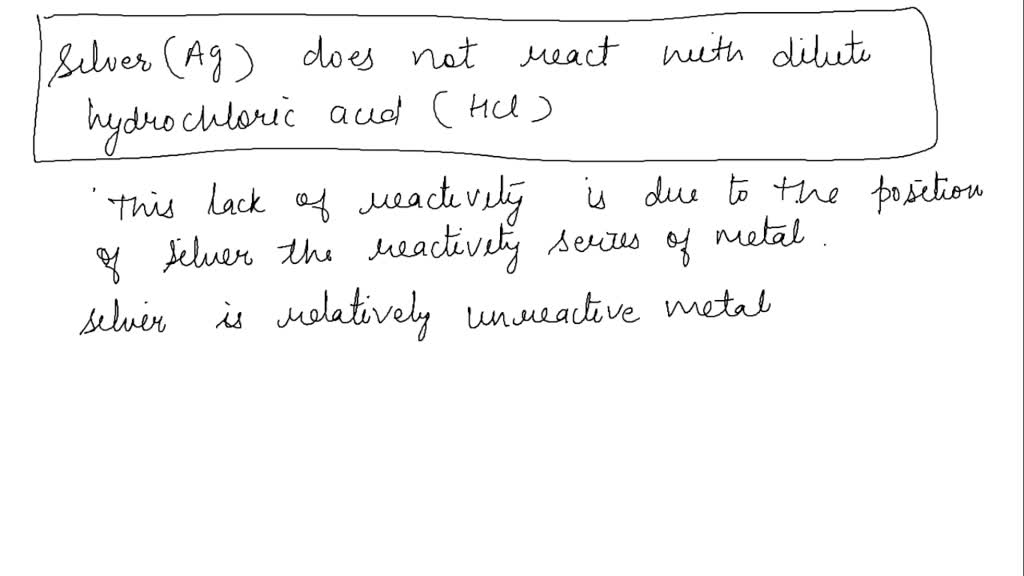 Silver (Ag) does not react with dilute
hydrochloric acid (HCl)
This lack of reactivity is due to the position
of silver the reactivity series of metal.
silver is relatively unreactive metal